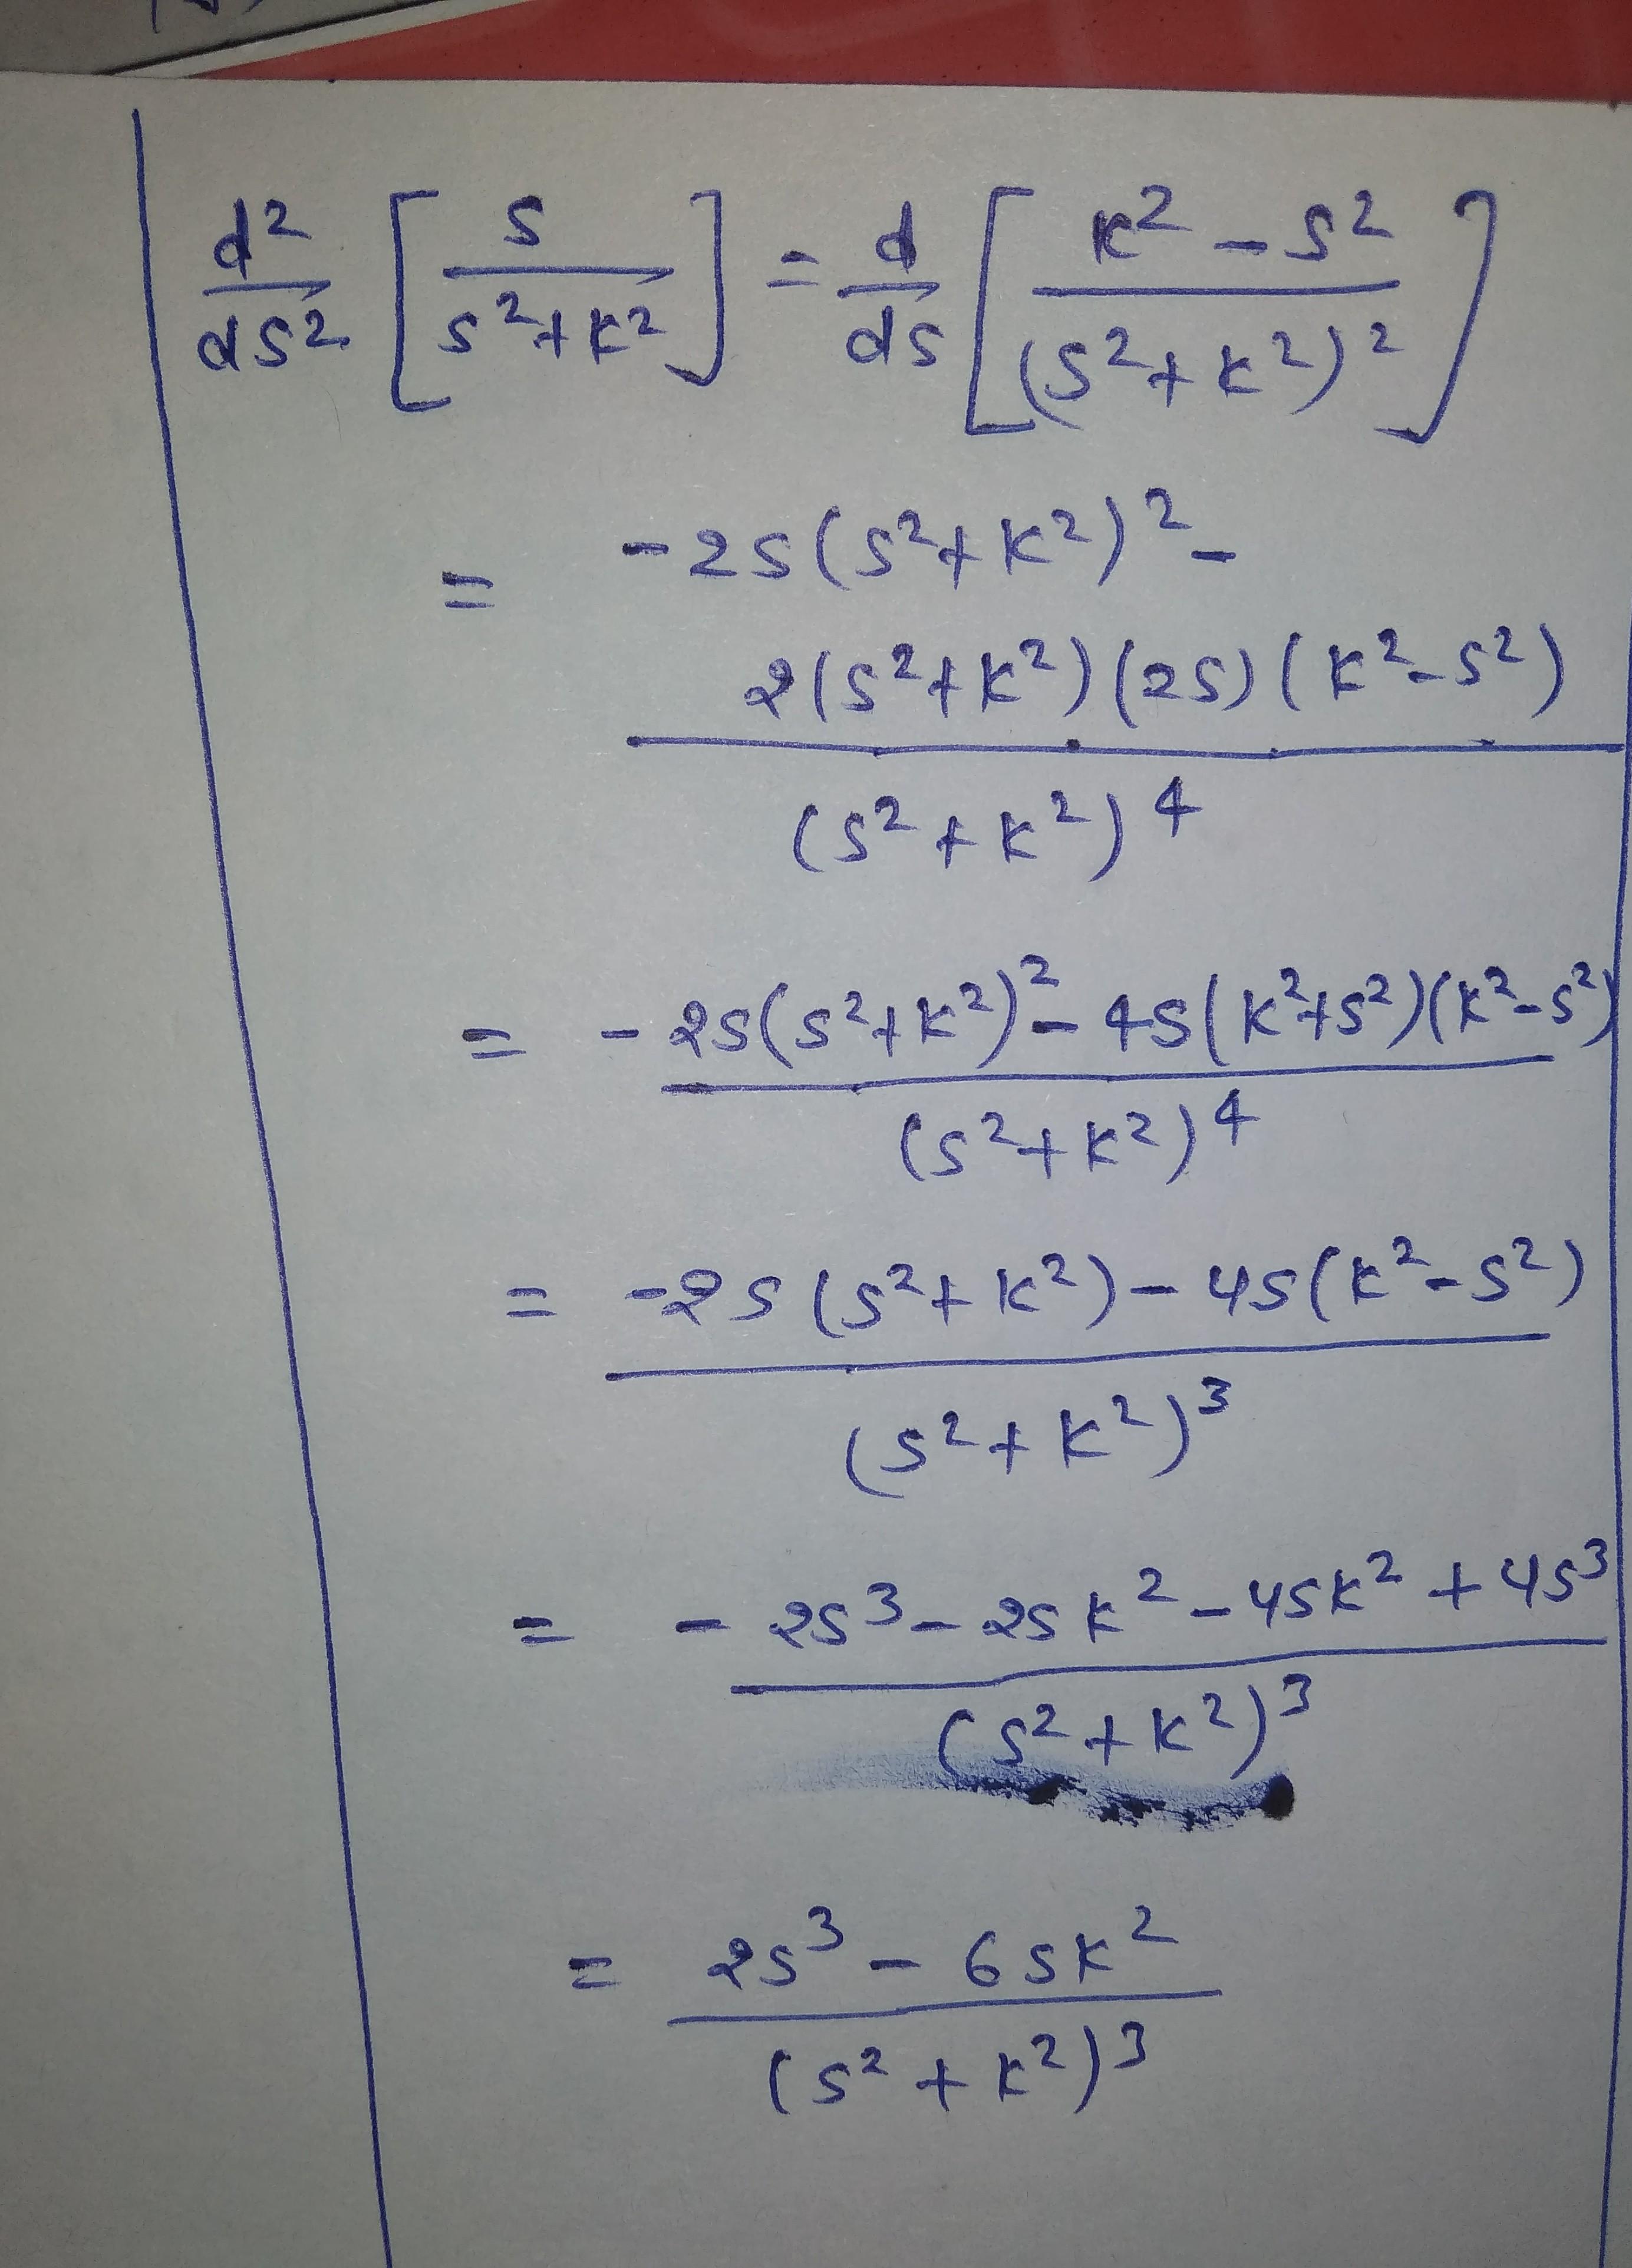 d²/ds² [s/(s²+k²)] = d/ds [(k²-s²)/(s²+k²)²]
= -2s(s²+k²)² -
2(s²+k²)(2s)(k²-s²)
(s²+k²)⁴
= -2s(s²+k²)² - 4s(k²+s²)(k²-s²)
(s²+k²)⁴
= -2s(s²+k²) - 4s(k²-s²)
(s²+k²)³
= -2s³ - 2sk² - 4sk² + 4s³
(s²+k²)³
= 2s³ - 6sk²
(s²+k²)³